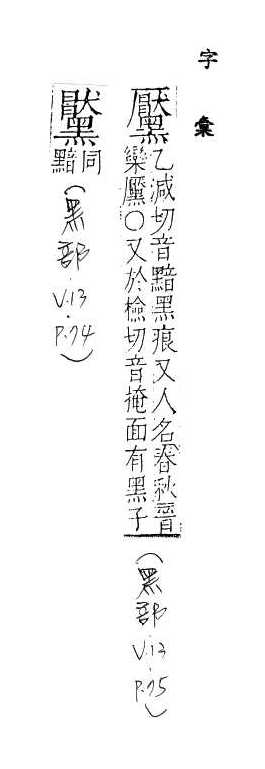 字彙
黶乙減切音黯黑痕又人名春秋晉
欒黶〇又於檢切音掩面有黑子
(黑部 V.13 P.75)
同
黯
(黑部 V.13 P.74)